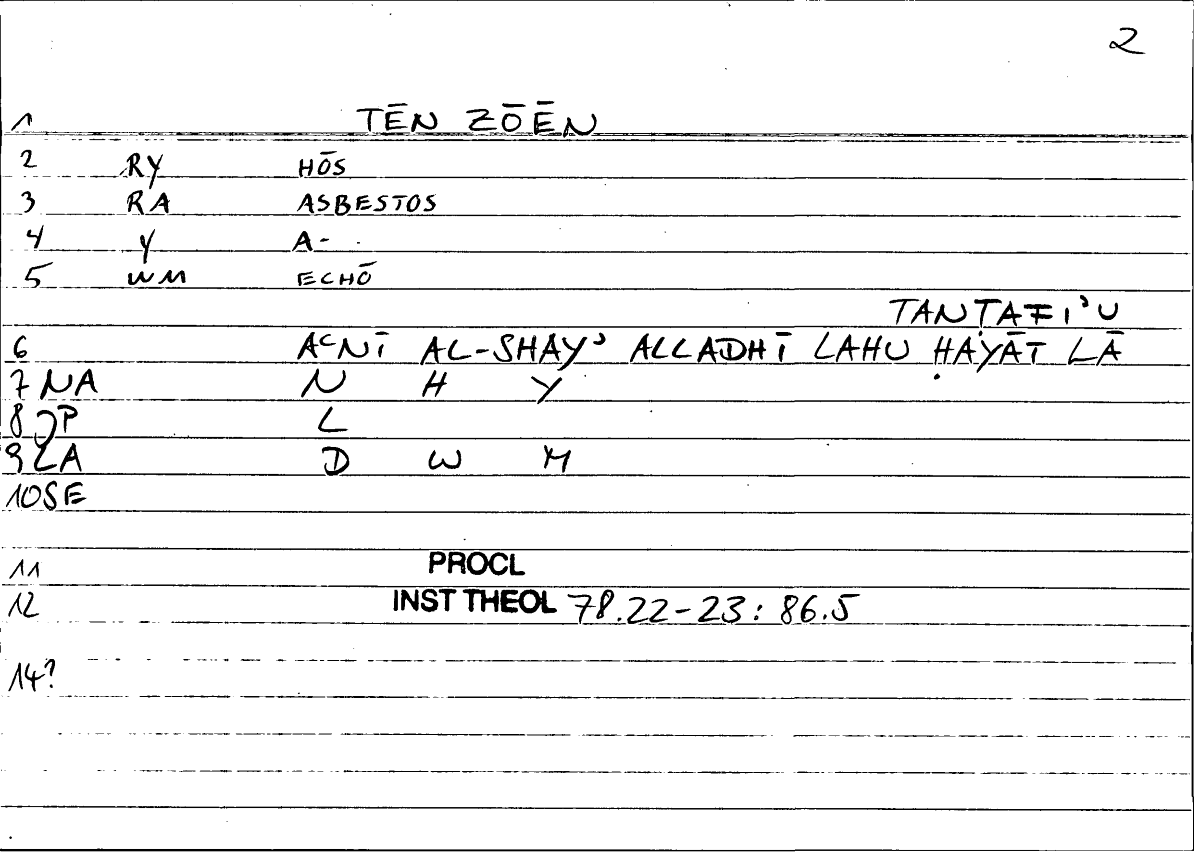 2
1 TĒN ZŌĒN
2 RY HŌS
3 RA ASBESTOS
4 Y A-
5 WM ECHŌ
TANṬAFI'U
6 AʿNĪ AL-SHAYʾ ALLADHĪ LAHU ḤAYĀT LĀ
7 NA N H Y
8 OP L
9 LA D W M
10 SE
11 PROCL
12 INST THEOL 78.22-23: 86.5
14?